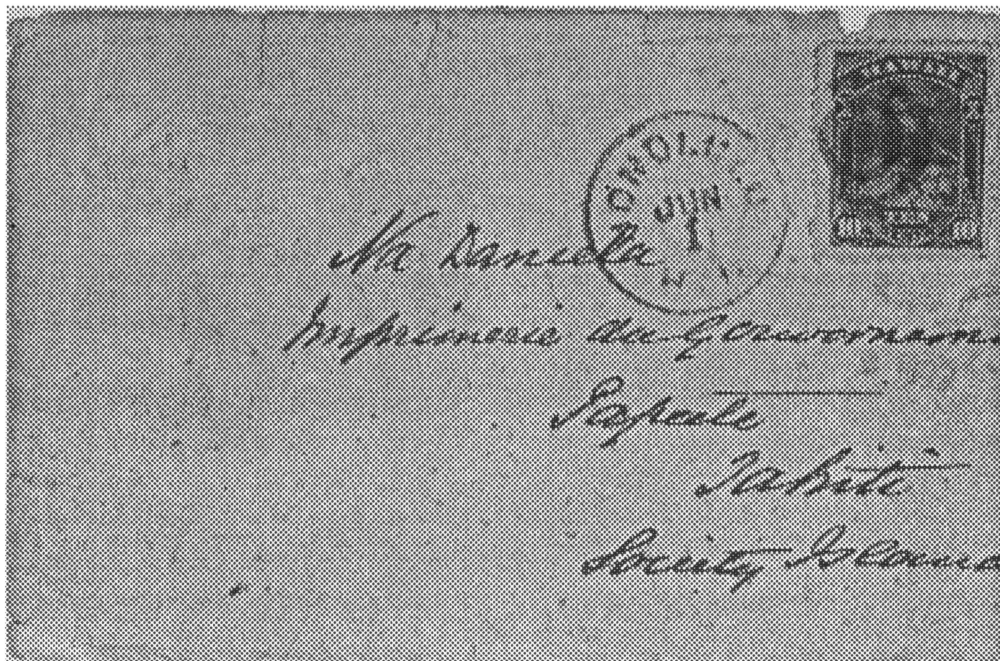 HAWAII
TEN
10 CENTS 10
HONOLULU
JUN
1
H.I.
Na Daniela
Imprimerie du Gouvernem
Papeete
Tahiti
Society Island